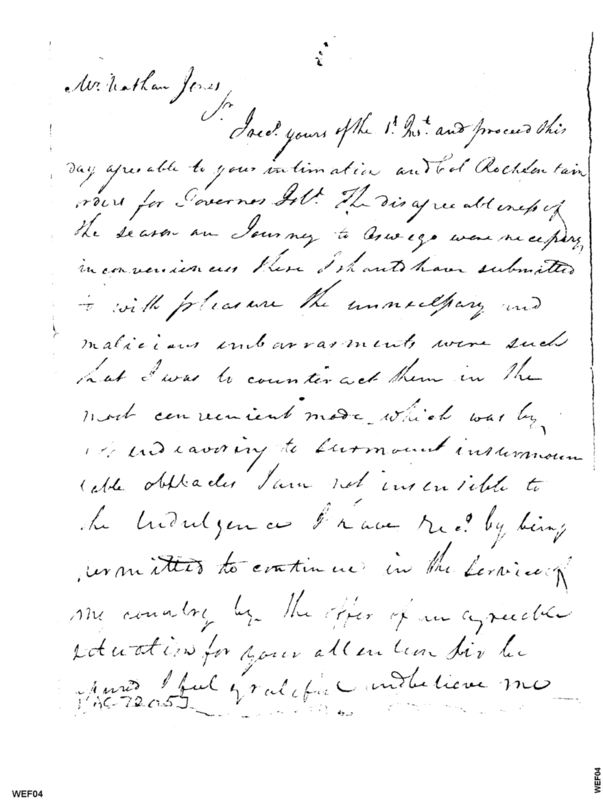 Mr. Nathan Jones
Sir
I recd. yours of the 1st. Inst. and proceed this
day agreable to your intimation and Col
orders for Governor Isld. The disagreeableness of
the season an Journey to Oswego were necessary
inconveniences these I should have submitted
to with pleasure the unnecessary and
malicious embarrasments were such
that I was to counteract them in the
most convenient mode which was by
endeavoring to surmount insurmoun
table obstacles I am not insensible to
the Indulgence I have Recd. by being
permitted to continue in the Service of
me country by the offer of an agreeable
situation for your attention Sir be
assured I feel grateful and believe me
WEF04
WEF04